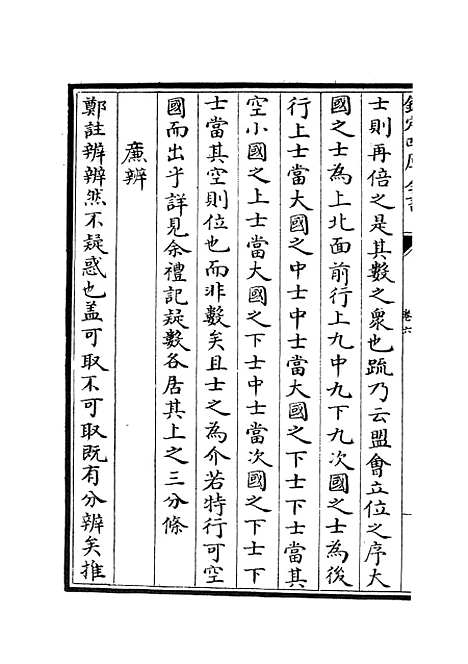 欽定四庫全書
卷六
士則再倍之是其數之衆也疏乃云盟會立位之序大
國之士為上北面前行上九中九下九次國之士為後
行上士當大國之中士中士當大國之下士下士當其
空小國之上士當大國之下士中士當次國之下士下
士當其空則位也而非數矣且士之為介若特行可空
國而出乎詳見余禮記疑數各居其上之三分條
廉辨
鄭註辨辨然不疑惑也盖可取不可取既有分辨矣推